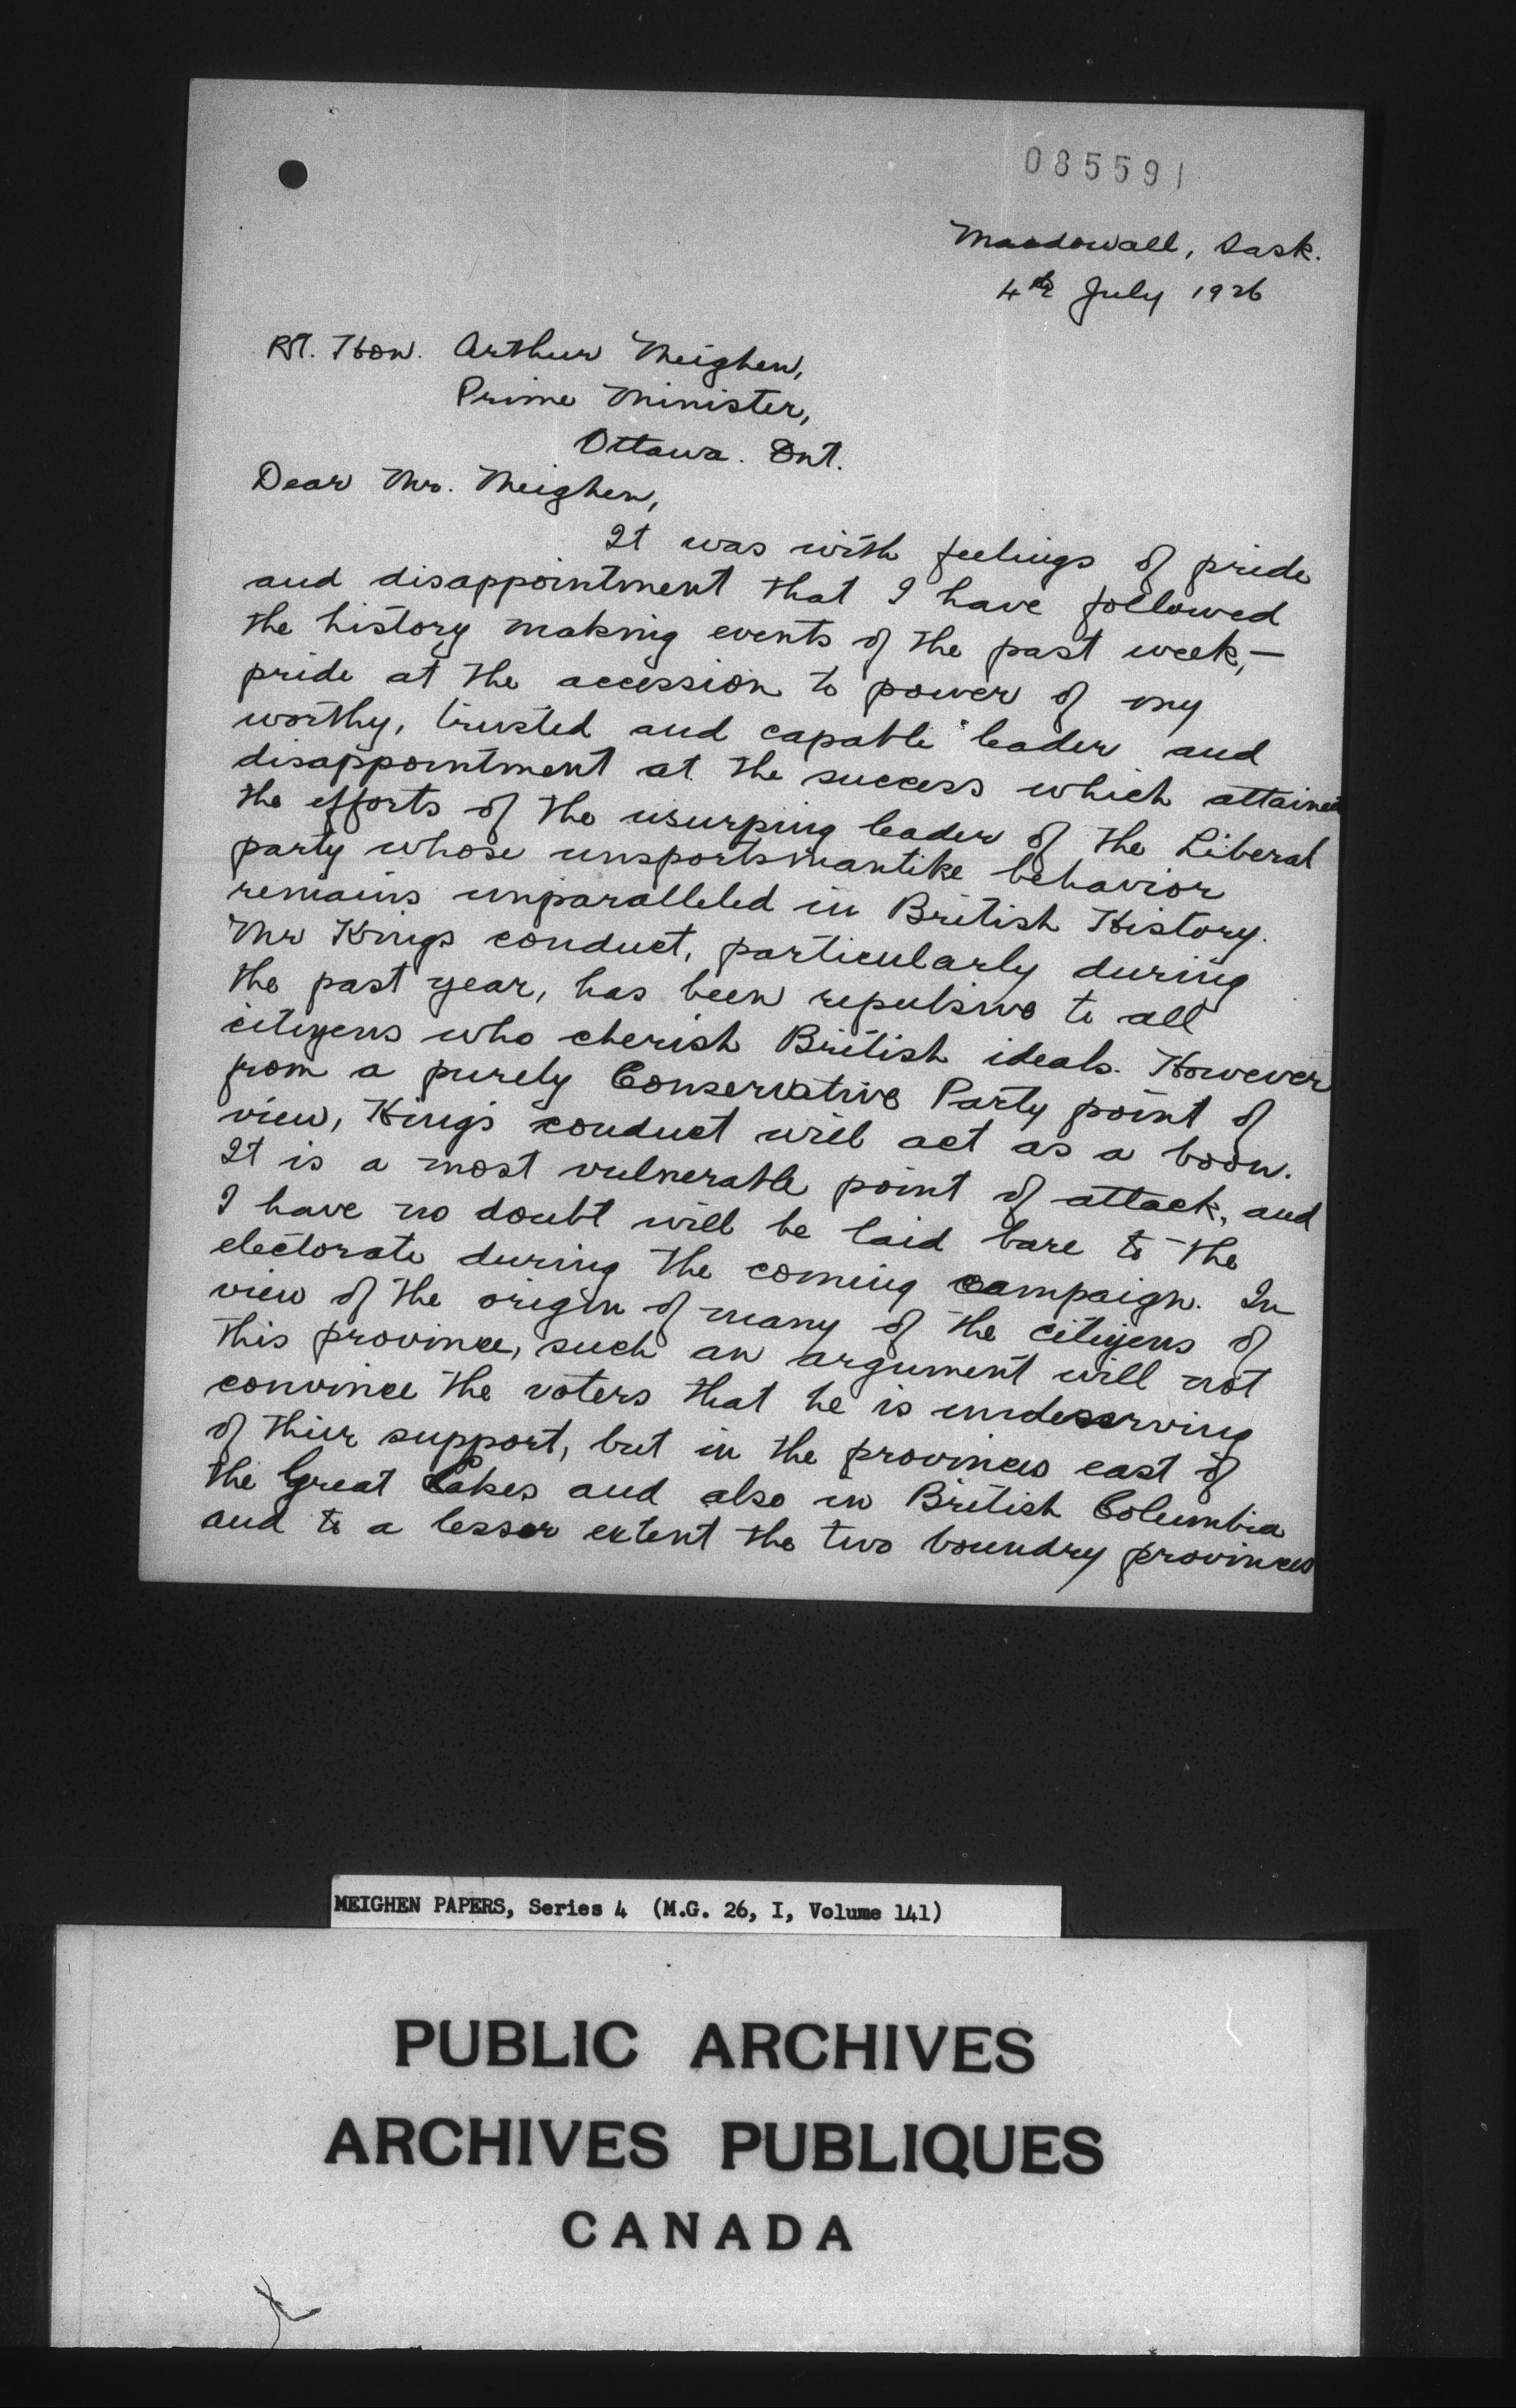 085591
Macdowall, Sask.
4th July 1926
Rt. Hon. Arthur Meighen,
Prime Minister,
Ottawa. Ont.
Dear Mr. Meighen,
It was with feelings of pride
and disappointment that I have followed
the history making events of the past week,—
pride at the accession to power of my
worthy, trusted and capable leader and
disappointment at the success which attained
the efforts of the usurping leader of the Liberal
party whose unsportsmanlike behavior
remains unparalleled in British History.
Mr Kings conduct, particularly during
the past year, has been repulsive to all
citizens who cherish British ideals. However
from a purely Conservative Party point of
view, King's conduct will act as a boon.
It is a most vulnerable point of attack, and
I have no doubt will be laid bare to the
electorate during the coming campaign. In
view of the origin of many of the citizens of
this province, such an argument will not
convince the voters that he is undeserving
of thier support, but in the provinces east of
the Great Lakes and also in British Columbia
and to a lesser extent the two boundry provinces
MEIGHEN PAPERS, Series 4 (M.G. 26, I, Volume 141)
PUBLIC ARCHIVES
ARCHIVES PUBLIQUES
CANADA